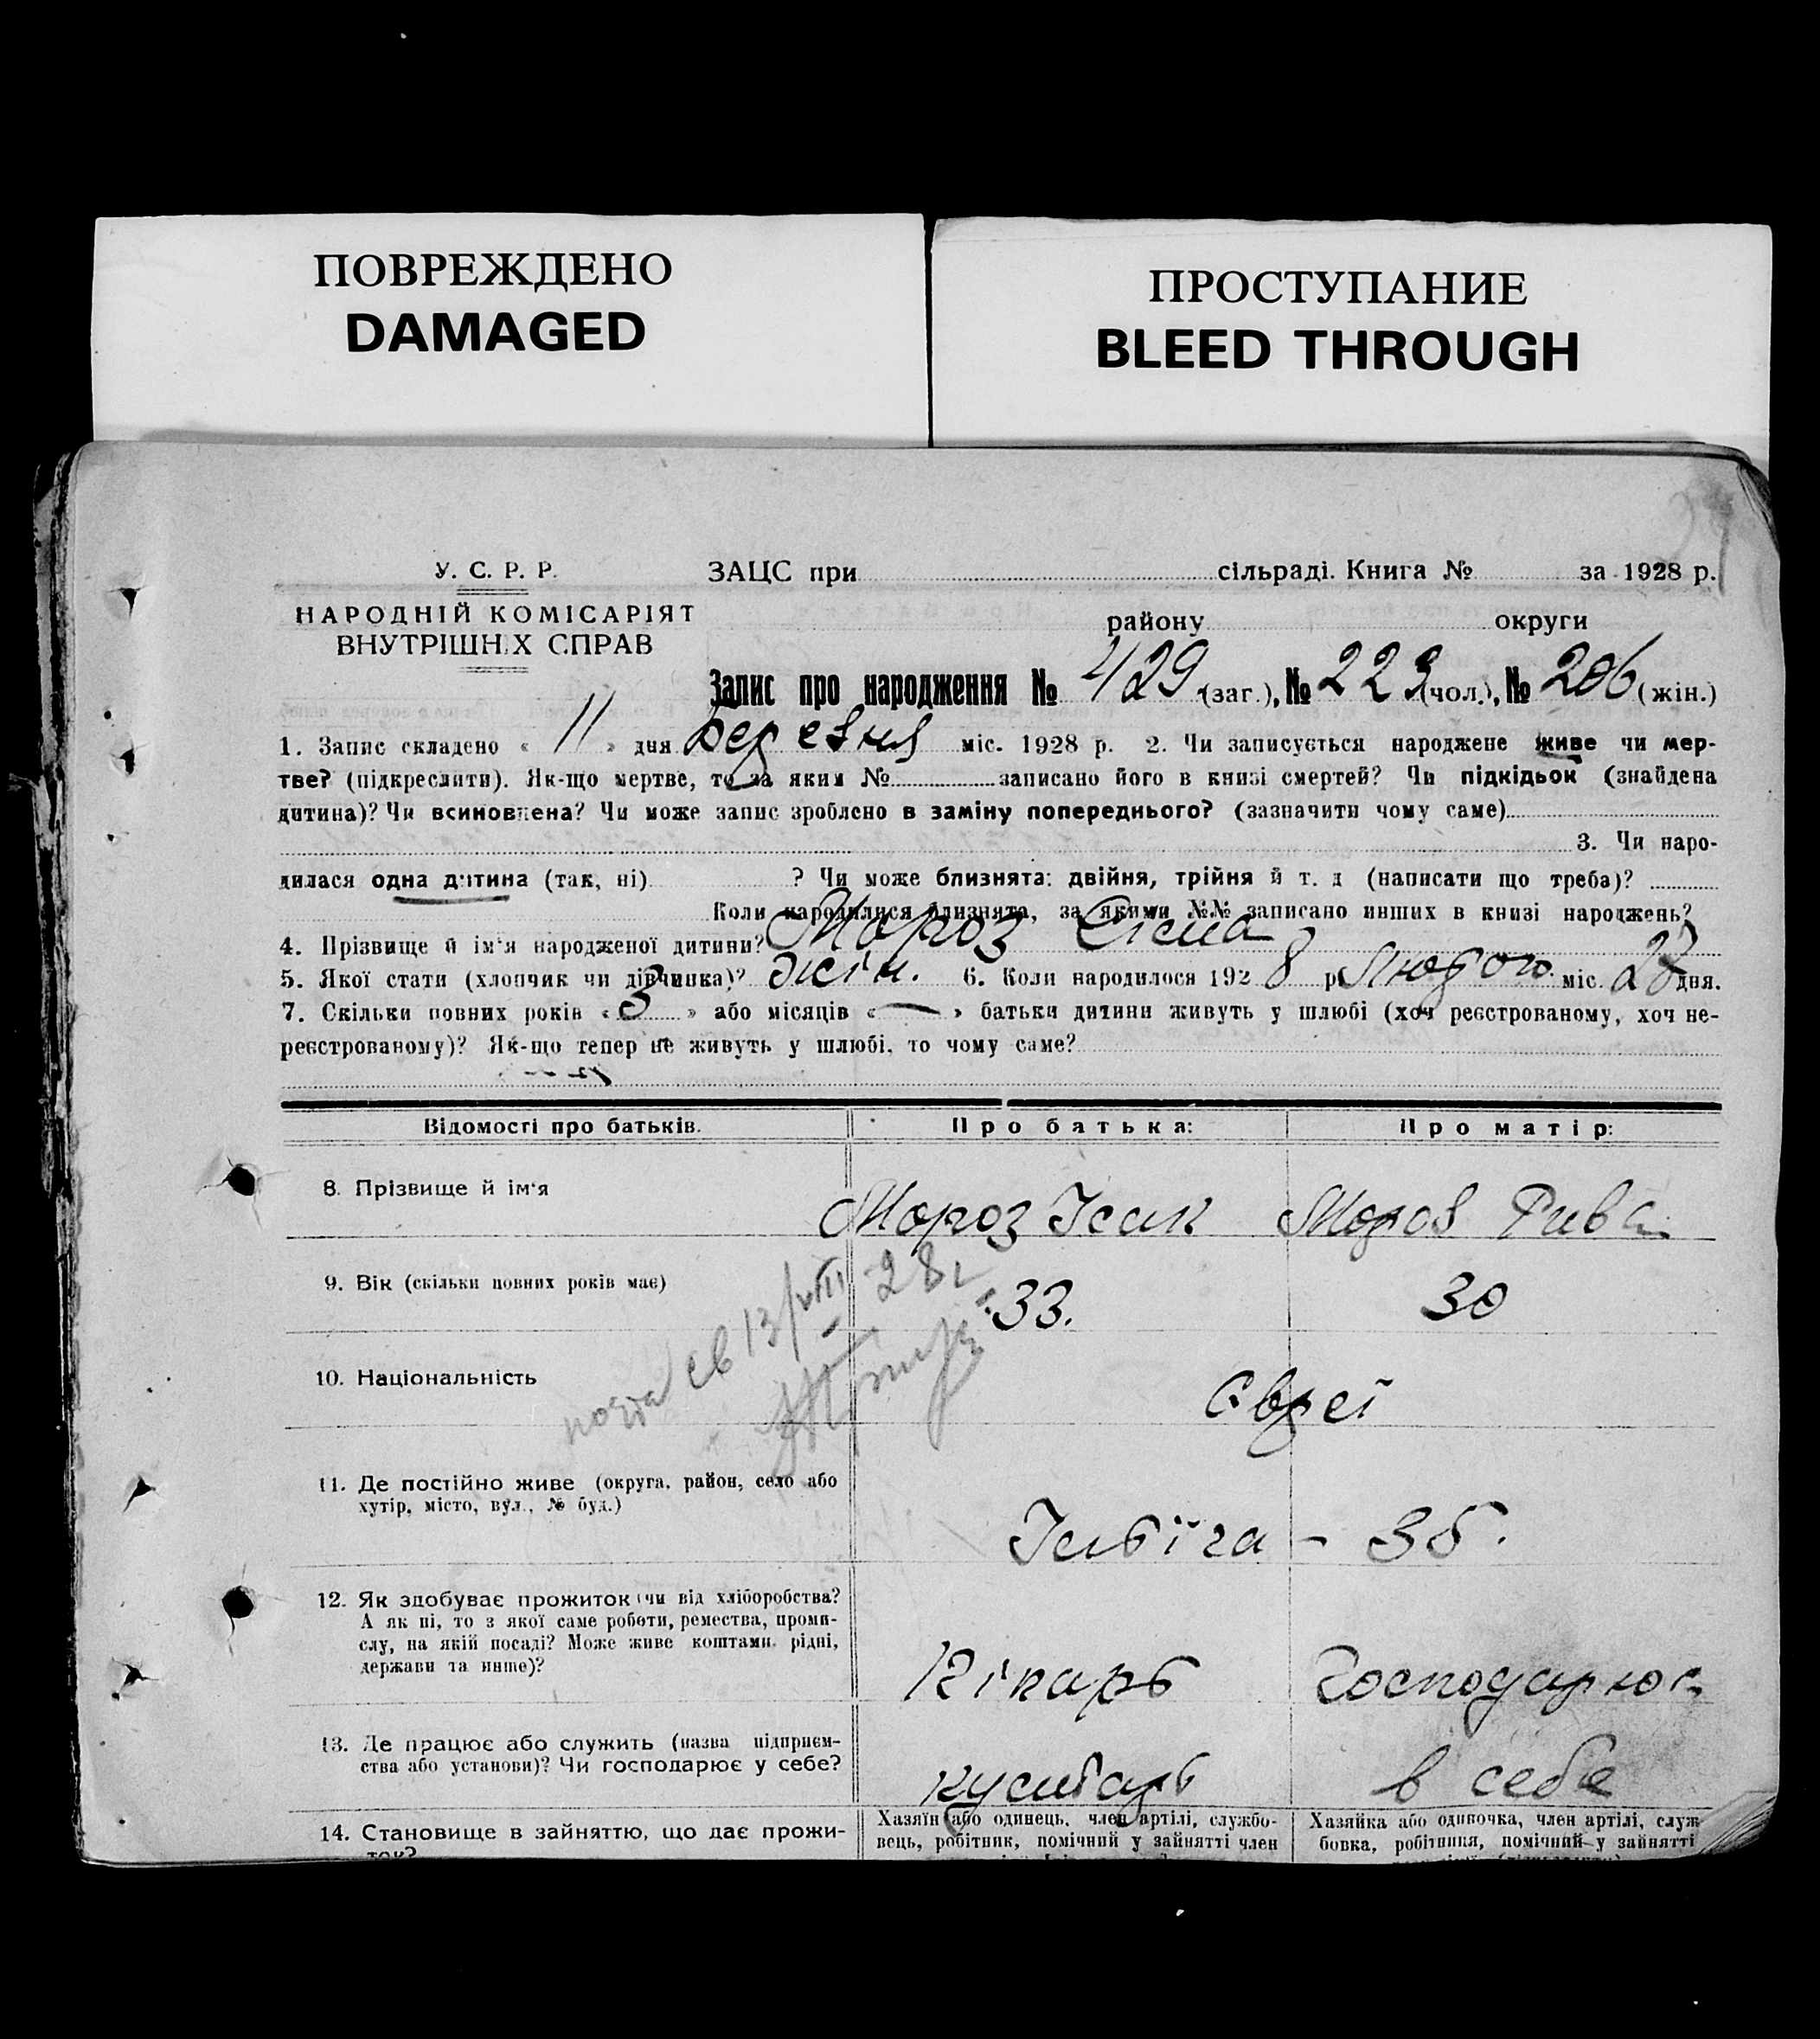 ПОВРЕЖДЕНО
DAMAGED
ПРОСТУПАНИЕ
BLEED THROUGH
У. С. Р. Р.
НАРОДНІЙ КОМІСАРІЯТ
ВНУТРІШНІХ СПРАВ
ЗАЦС при сільраді. Книга № за 1928 р.
району округи
Запис про народження № 429 (заг.), № 223 (чол.), № 206 (жін.)
1. Запис складено « 11 » дня Березня міс. 1928 р. 2. Чи записується народжене живе чи мер-
тве? (підкреслити). Як-що мертве, то за яким № записано його в книзі смертей? Чи підкідьок (знайдена
дитина)? Чи всиновлена? Чи може запис зроблено в заміну попереднього? (зазначити чому саме)
3. Чи наро-
дилася одна дитина (так, ні) ? Чи може близнята: двійня, трійня й т. д (написати що треба)?
Коли народилися близнята, за якими №№ записано инших в книзі народжень?
4. Прізвище й ім'я народженої дитини? Мороз
5. Якої стати (хлопчик чи дівчинка)? жін. 6. Коли народилося 1928 р. Лютого міс. 23 дня.
7. Скільки повних років « 3 » або місяців « — » батьки дитини живуть у шлюбі (хоч реєстрованому, хоч не-
реєстрованому)? Як-що тепер не живуть у шлюбі, то чому саме?
Відомості про батьків. Про батька: Про матір:
8. Прізвище й ім'я Мороз Ісак Мороз Рива
9. Вік (скільки повних років має) 33. 30
св 13/VIII 28
10. Національність Євреї
11. Де постійно живе (округа, район, село або
хутір, місто, вул., № буд.)
Ілліча – 35.
12. Як здобуває прожиток (чи від хліборобства?
А як ні, то з якої саме роботи, ремества, проми-
слу, на якій посаді? Може живе коштами рідні,
держави та инше)?
Пікарь Господарює
13. Де працює або служить (назва підприєм-
ства або установи)? Чи господарює у себе?
кустарь в себе
14. Становище в зайняттю, що дає прожи-
ток?
Хазяїн або одинець, член артілі, службо-
вець, робітник, помічний у зайнятті член
Хазяйка або одиночка, член артілі, служ-
бовка, робітниця, помічний у зайнятті